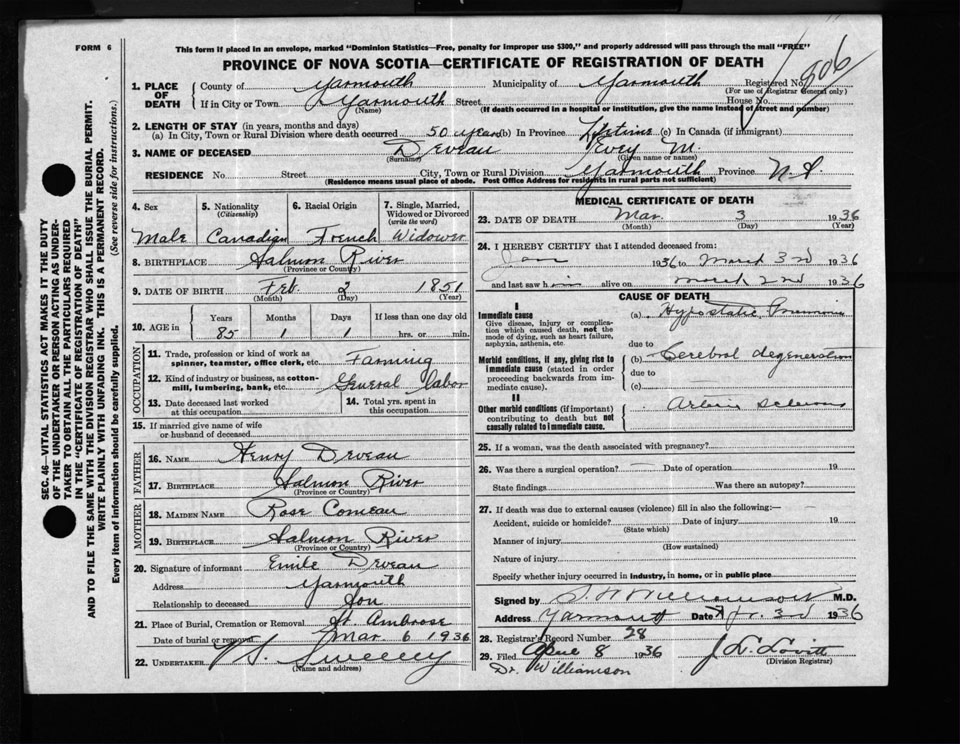 FORM 6
This form if placed in an envelope, marked "Dominion Statistics—Free, penalty for improper use $300," and properly addressed will pass through the mail "FREE"
PROVINCE OF NOVA SCOTIA—CERTIFICATE OF REGISTRATION OF DEATH
806
1. PLACE OF DEATH
County of Yarmouth Municipality of Yarmouth Registered No.
(For use of Registrar General only)
If in City or Town Yarmouth Street House No.
(Name) (If death occurred in a hospital or institution, give the name instead of street and number)
2. LENGTH OF STAY (in years, months and days)
(a) In City, Town or Rural Division where death occurred 50 years (b) In Province Lifetime (c) In Canada (if immigrant)
3. NAME OF DECEASED Deveau Evey M.
(Surname) (Given name or names)
RESIDENCE No. Street City, Town or Rural Division Yarmouth Province N.S.
(Residence means usual place of abode. Post Office Address for residents in rural parts not sufficient)
4. Sex 5. Nationality (Citizenship) 6. Racial Origin 7. Single, Married, Widowed or Divorced (write the word)
Male Canadian French Widower
8. BIRTHPLACE Salmon River
(Province or Country)
9. DATE OF BIRTH Feb. 2 1851
(Month) (Day) (Year)
10. AGE in Years Months Days If less than one day old
85 1 1 hrs. or min.
OCCUPATION
11. Trade, profession or kind of work as spinner, teamster, office clerk, etc. Farming
12. Kind of industry or business, as cotton-mill, lumbering, bank, etc. General labor
13. Date deceased last worked at this occupation 14. Total yrs. spent in this occupation
15. If married give name of wife or husband of deceased
FATHER
16. NAME Henry Deveau
17. BIRTHPLACE Salmon River
(Province or Country)
MOTHER
18. MAIDEN NAME Rose Comeau
19. BIRTHPLACE Salmon River
(Province or Country)
20. Signature of informant Emile Deveau
Address Yarmouth
Relationship to deceased Son
21. Place of Burial, Cremation or Removal St. Ambrose
Date of burial or removal Mar 6 1936
22. UNDERTAKER V. S. Sweeney
(Name and address)
MEDICAL CERTIFICATE OF DEATH
23. DATE OF DEATH Mar. 3 1936
(Month) (Day) (Year)
24. I HEREBY CERTIFY that I attended deceased from:
Jan 1936 to March 3rd 1936
and last saw him alive on March 2nd 1936
CAUSE OF DEATH
I
Immediate cause
Give disease, injury or complication which caused death, not the mode of dying, such as heart failure, asphyxia, asthenia, etc.
(a) Hypostatic Pneumonia
due to
Morbid conditions, if any, giving rise to immediate cause (stated in order proceeding backwards from immediate cause).
(b) Cerebral degeneration
due to
(c)
II
Other morbid conditions (if important) contributing to death but not causally related to immediate cause.
25. If a woman, was the death associated with pregnancy?
26. Was there a surgical operation? — Date of operation 19
State findings Was there an autopsy?
27. If death was due to external causes (violence) fill in also the following:—
Accident, suicide or homicide? Date of injury 19
(State which)
Manner of injury
(How sustained)
Nature of injury
Specify whether injury occurred in industry, in home, or in public place
Signed by Williamson M.D.
Address Yarmouth Date 3rd 1936
28. Registrar's Record Number 28
29. Filed April 8 1936 J. L. Lovitt
(Division Registrar)
Dr. Williamson
SEC. 46—VITAL STATISTICS ACT MAKES IT THE DUTY
OF THE UNDERTAKER OR PERSON ACTING AS UNDER-
TAKER TO OBTAIN ALL THE PARTICULARS REQUIRED
IN THE "CERTIFICATE OF REGISTRATION OF DEATH"
AND TO FILE THE SAME WITH THE DIVISION REGISTRAR WHO SHALL ISSUE THE BURIAL PERMIT.
WRITE PLAINLY WITH UNFADING INK. THIS IS A PERMANENT RECORD.
Every item of information should be carefully supplied. (See reverse side for instructions.)